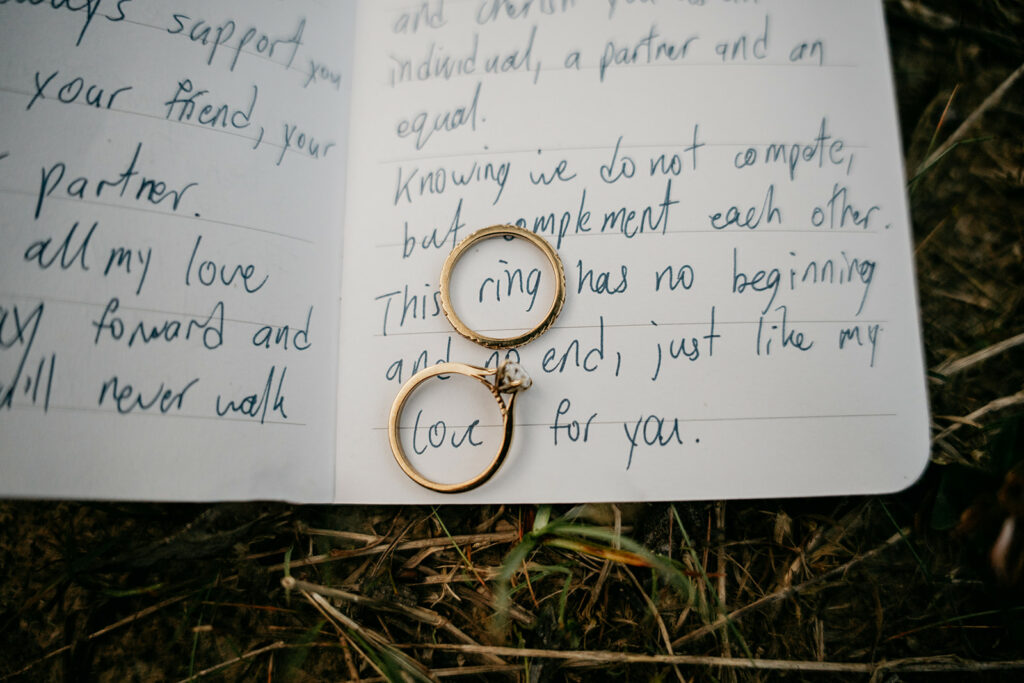 support you
your friend, your
partner.
all my love
forward and
will never walk
and cherish you as an
individual, a partner and an
equal.
Knowing we do not compete,
but complement each other.
This ring has no beginning
and no end, just like my
love for you.